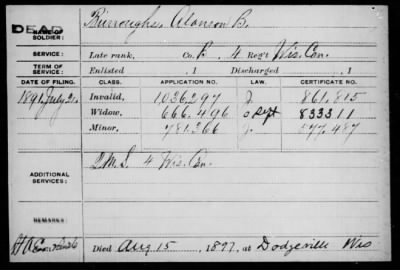 DEAD
NAME OF SOLDIER: Burroughs, Alonson B.
SERVICE: Late rank, Co. B, 4 Reg't Wis. Cav.
TERM OF SERVICE: Enlisted , 1 Discharged , 1
DATE OF FILING. CLASS. APPLICATION NO. LAW. CERTIFICATE NO.
1891, July 21. Invalid, 1036297 J. 861.815
Widow, 666.496 833311
Minor, 781366 J. 577.487
ADDITIONAL SERVICES: 4 Wis. Cav.
REMARKS:
Died Aug 15, 1897, at Dodgeville Wis